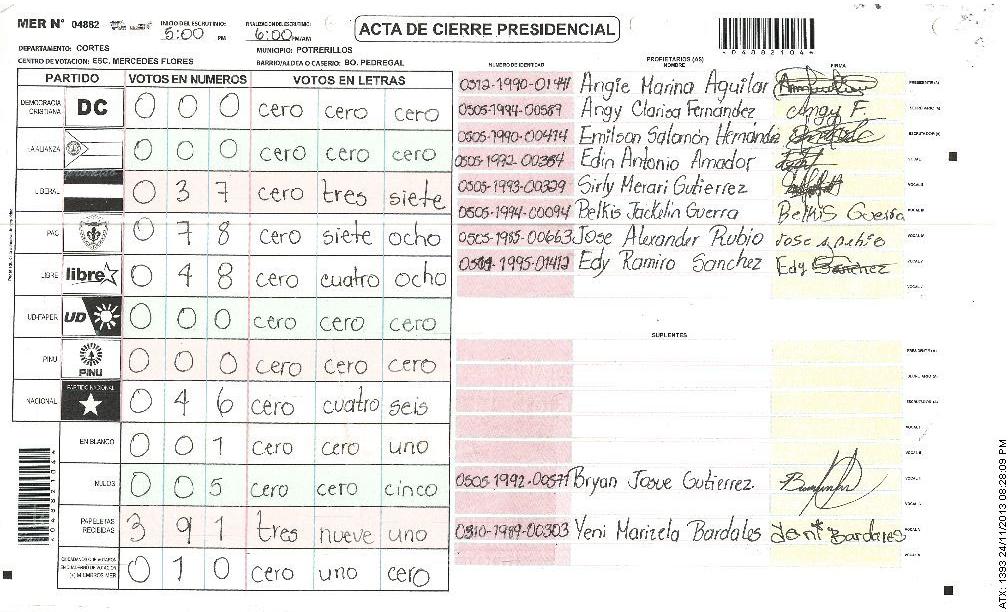 MER N° 04882
INICIO DEL ESCRUTINIO: 5:00 PM
FINALIZACION DEL ESCRUTINIO: 6:00 PM/AM
ACTA DE CIERRE PRESIDENCIAL
DEPARTAMENTO: CORTES
MUNICIPIO: POTRERILLOS
CENTRO DE VOTACION: ESC. MERCEDES FLORES
BARRIO/ALDEA O CASERIO: BO. PEDREGAL
PARTIDO VOTOS EN NUMEROS VOTOS EN LETRAS
DEMOCRACIA CRISTIANA DC 0 0 0 cero cero cero
LA ALIANZA 0 0 0 cero cero cero
LIBERAL 0 3 7 cero tres siete
PAC 0 7 8 cero siete ocho
LIBRE libre 0 4 8 cero cuatro ocho
UD-FAPER UD 0 0 0 cero cero cero
PINU PINU 0 0 0 cero cero cero
NACIONAL PARTIDO NACIONAL 0 4 6 cero cuatro seis
EN BLANCO 0 0 1 cero cero uno
NULOS 0 0 5 cero cero cinco
PAPELETAS RECIBIDAS 3 9 1 tres nueve uno
0 1 0 cero uno cero
PROPIETARIOS (AS)
NUMERO DE IDENTIDAD NOMBRE FIRMA
Angie Marina Aguilar
0505-1994-00587 Angy Clarisa Fernandez Angy F.
0505-1990-00414 Emilson Salomón Hernánde
0505-1992-00384 Edin Antonio Amador
0505-1993-00329 Sirly Merari Gutierrez
0505-1994-00094 Belkis Jackelin Guerra Belkis Guerra
0505-1985-00663 Jose Alexander Rubio
Edy Ramiro Sanchez Edy Sanchez
SUPLENTES
0505-1992-00571 Bryan Josue Gutierrez
Yeni Marizela Bardales Yeni Bardales
048821044
ATX: 1393 24/11/2013 08:28:09 PM